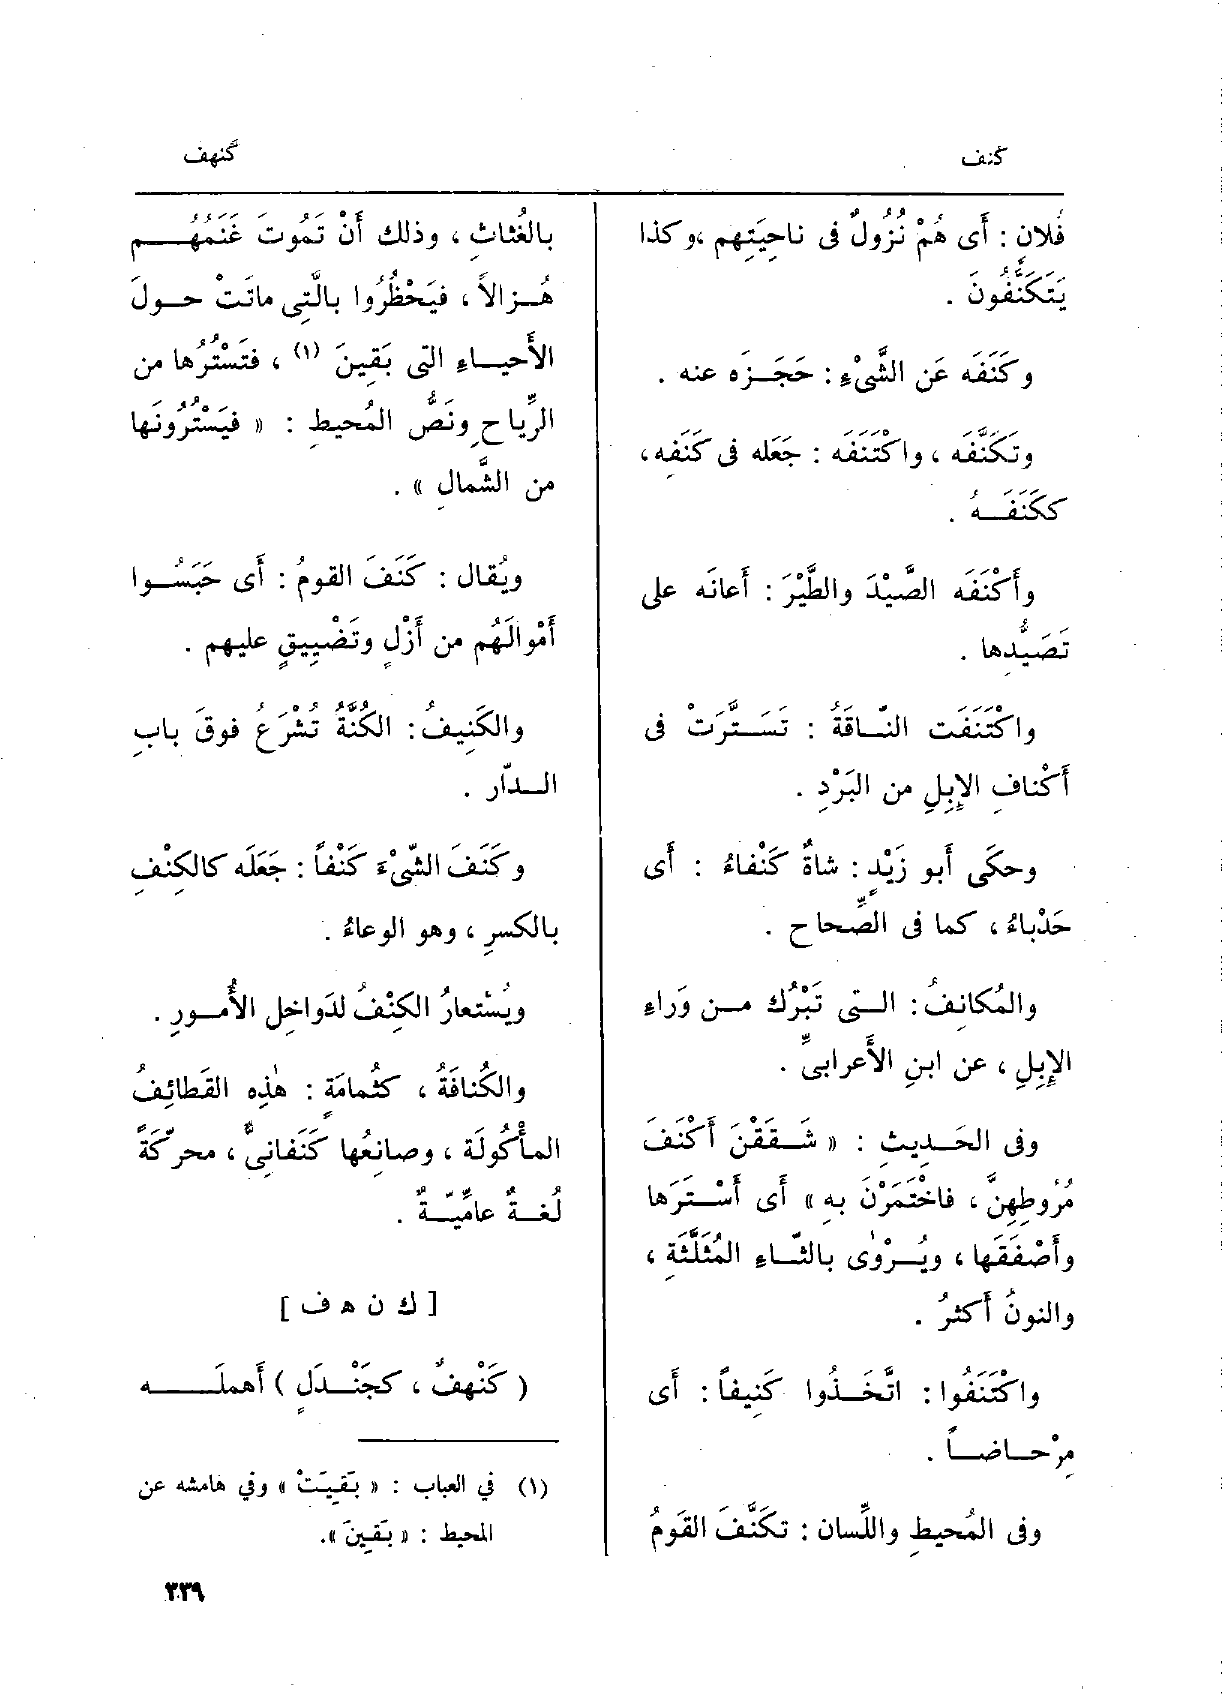 كنف
كنهف
فُلانٍ : أَى هُمْ نُزُولٌ فى ناحِيَتِهِم ، وكذا
يَتَكَنَّفُونَ .
وكَنَفَه عَن الشَّىْءِ : حَجَـزَه عنه .
وتَكَنَّفَه ، واكْتَنَفَه : جَعَله فى كَنَفِه ،
ككَنَفَـهُ .
وأَكْنَفَه الصَّيْدَ والطَّيْرَ : أَعانَه على
تَصَيُّدِها .
واكْتَنَفَت النّـاقَةُ : تَسَـتَّرَتْ فى
أَكْنافِ الإِبِلِ من البَرْدِ .
وحكَى أَبو زَيْدٍ : شاةٌ كَنْفاءُ : أَى
حَدْباءُ ، كما فى الصِّحاح .
والمُكانِفُ : الـتى تَبْرُك مـن وَراءِ
الإِبِلِ ، عن ابنِ الأَعرابىِّ .
وفى الحَـدِيثِ : « شَـقَقْنَ أَكْنَفَ
مُرُوطِهِنَّ ، فاخْتَمَرْنَ بهِ » أَى أَسْـتَرَها
وأَصْفَقَها ، ويُـرْوَى بالثّـاءِ المُثَلَّثَةِ ،
والنونُ أَكثرُ .
واكْتَنَفُوا : اتَّخَـذُوا كَنِيفاً : أَى
مِرْحـاضـاً .
وفى المُحيطِ واللِّسان : تكَنَّفَ القَومُ
بالغُثاثِ ، وذلك أَنْ تَمُوتَ غَنَمُهُـــم
هُـزالاً ، فيَحْظُرُوا بالَّتِى ماتَتْ حـولَ
الأَحيـاءِ التى بَقِينَ (١) ، فتَسْتُرُها من
الرِّياحِ ونَصُّ المُحيطِ : « فيَسْتُرُونَها
من الشَّمالِ » .
ويُقال : كَنَفَ القومُ : أَى حَبَسُـوا
أَمْوالَهُم من أَزْلٍ وتَضْيِيقٍ عليهم .
والكَنِيفُ : الكُنَّةُ تُشْرَعُ فوقَ بابِ
الـدّار .
وكَنَفَ الشَّىْءَ كَنْفاً : جَعَلَه كالكِنْفِ
بالكسرِ ، وهو الوعاءُ .
ويُسْتعارُ الكِنْفُ لدَواخِلِ الأُمـورِ .
والكُنافَةُ ، كثُمامَةٍ : هٰذِه القَطائِفُ
المأْكُولَة ، وصانِعُها كَنَفانِىٌّ ، محرّكَةً
لُغـةٌ عامِّيّـةٌ .
[ ك ن ه ف ]
( كَنْهفٌ ، كجَنْـدَلٍ ) أَهملَـــــه
(١) في العباب : « بَقِيَتْ » وفي هامشه عن
المحيط : « بَقِينَ ».
٣٣٩